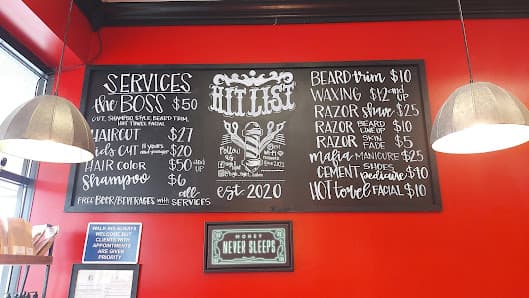 SERVICES
the BOSS $50
CUT, SHAMPOO, STYLE, BEARD TRIM,
HOT TOWEL FACIAL
HAIRCUT $27
kids CUT 10 years and younger $20
HAIR COLOR $50 and UP
Shampoo $6
FREE BEER/BEVERAGES with all SERVICES
HIT LIST
Follow
est. 2020
BEARD trim $10
WAXING $12 and UP
RAZOR shave $25
RAZOR BEARD LINE UP $10
RAZOR SKIN FADE $5
mafia MANICURE $25
CEMENT SHOES pedicure $10
HOT towel FACIAL $10
WALK-INS ALWAYS
WELCOME BUT
CLIENTS WITH
APPOINTMENTS
ARE GIVEN
PRIORITY
MONEY
NEVER SLEEPS